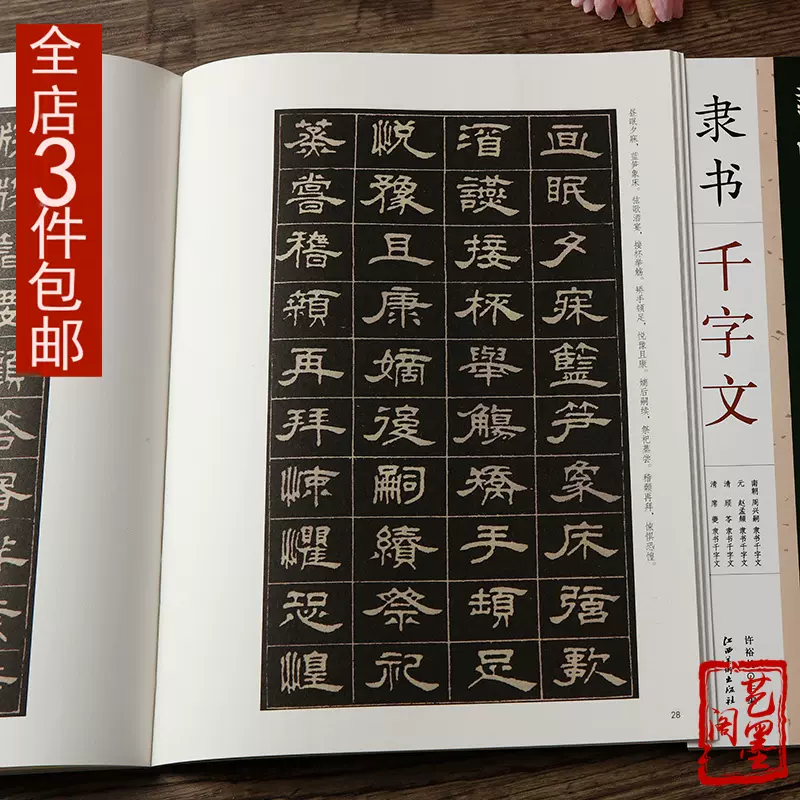 全店3件包邮
晝眠夕寐籃笋象床弦歌
酒讌接杯舉觴矯手頓足
悅豫且康嫡後嗣續祭祀
蒸嘗稽顙再拜悚懼恐惶
昼眠夕寐，蓝笋象床。弦歌酒宴，接杯举觞。矫手顿足，悦豫且康。嫡后嗣续，祭祀蒸尝。稽颡再拜，悚惧恐惶。
28
隶书
千字文
南朝 周兴嗣 隶书千字文
元 赵孟頫 隶书千字文
清 顾苓 隶书千字文
清 席夔 隶书千字文
许裕
江西美术出版社
艺墨阁